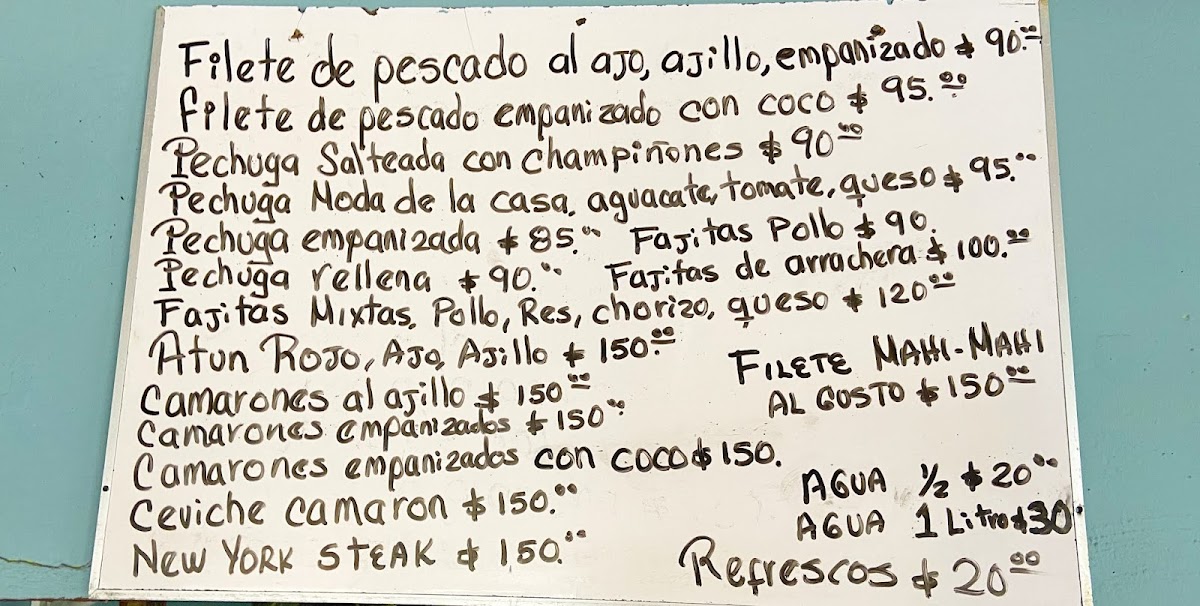 Filete de pescado al ajo, ajillo, empanizado $ 90.00
filete de pescado empanizado con coco $ 95.00
Pechuga Salteada con champiñones $ 90.00
Pechuga Moda de la casa, aguacate, tomate, queso $ 95.00
Pechuga empanizada $ 85.00 Fajitas Pollo $ 90.
Pechuga rellena $ 90.00 Fajitas de arrachera $ 100.00
Fajitas Mixtas, Pollo, Res, chorizo, queso $ 120.00
Atun Rojo, Ajo, Ajillo $ 150.00
Camarones al ajillo $ 150.00
Camarones empanizados $ 150.00
Camarones empanizados con coco $ 150.
Ceviche camaron $ 150.00
NEW YORK STEAK $ 150.00
FILETE MAHI-MAHI
AL GOSTO $ 150.00
AGUA ½ $ 20.00
AGUA 1 Litro $ 30
Refrescos $ 20.00